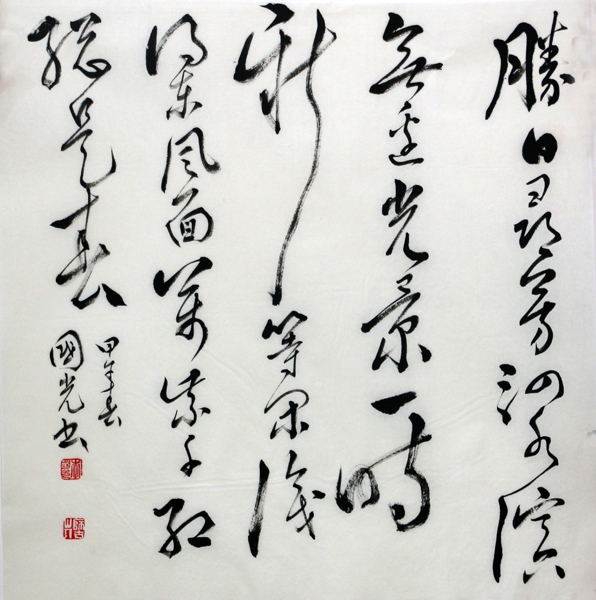 勝日尋芳泗水濱
無邊光景一時
新等閒識
得東風面萬紫千紅
總是春
甲午春
國光書